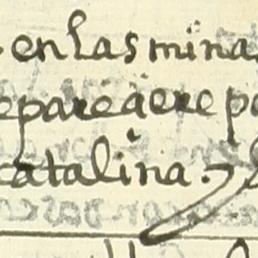 en las mina
epareçiere po
catalina.